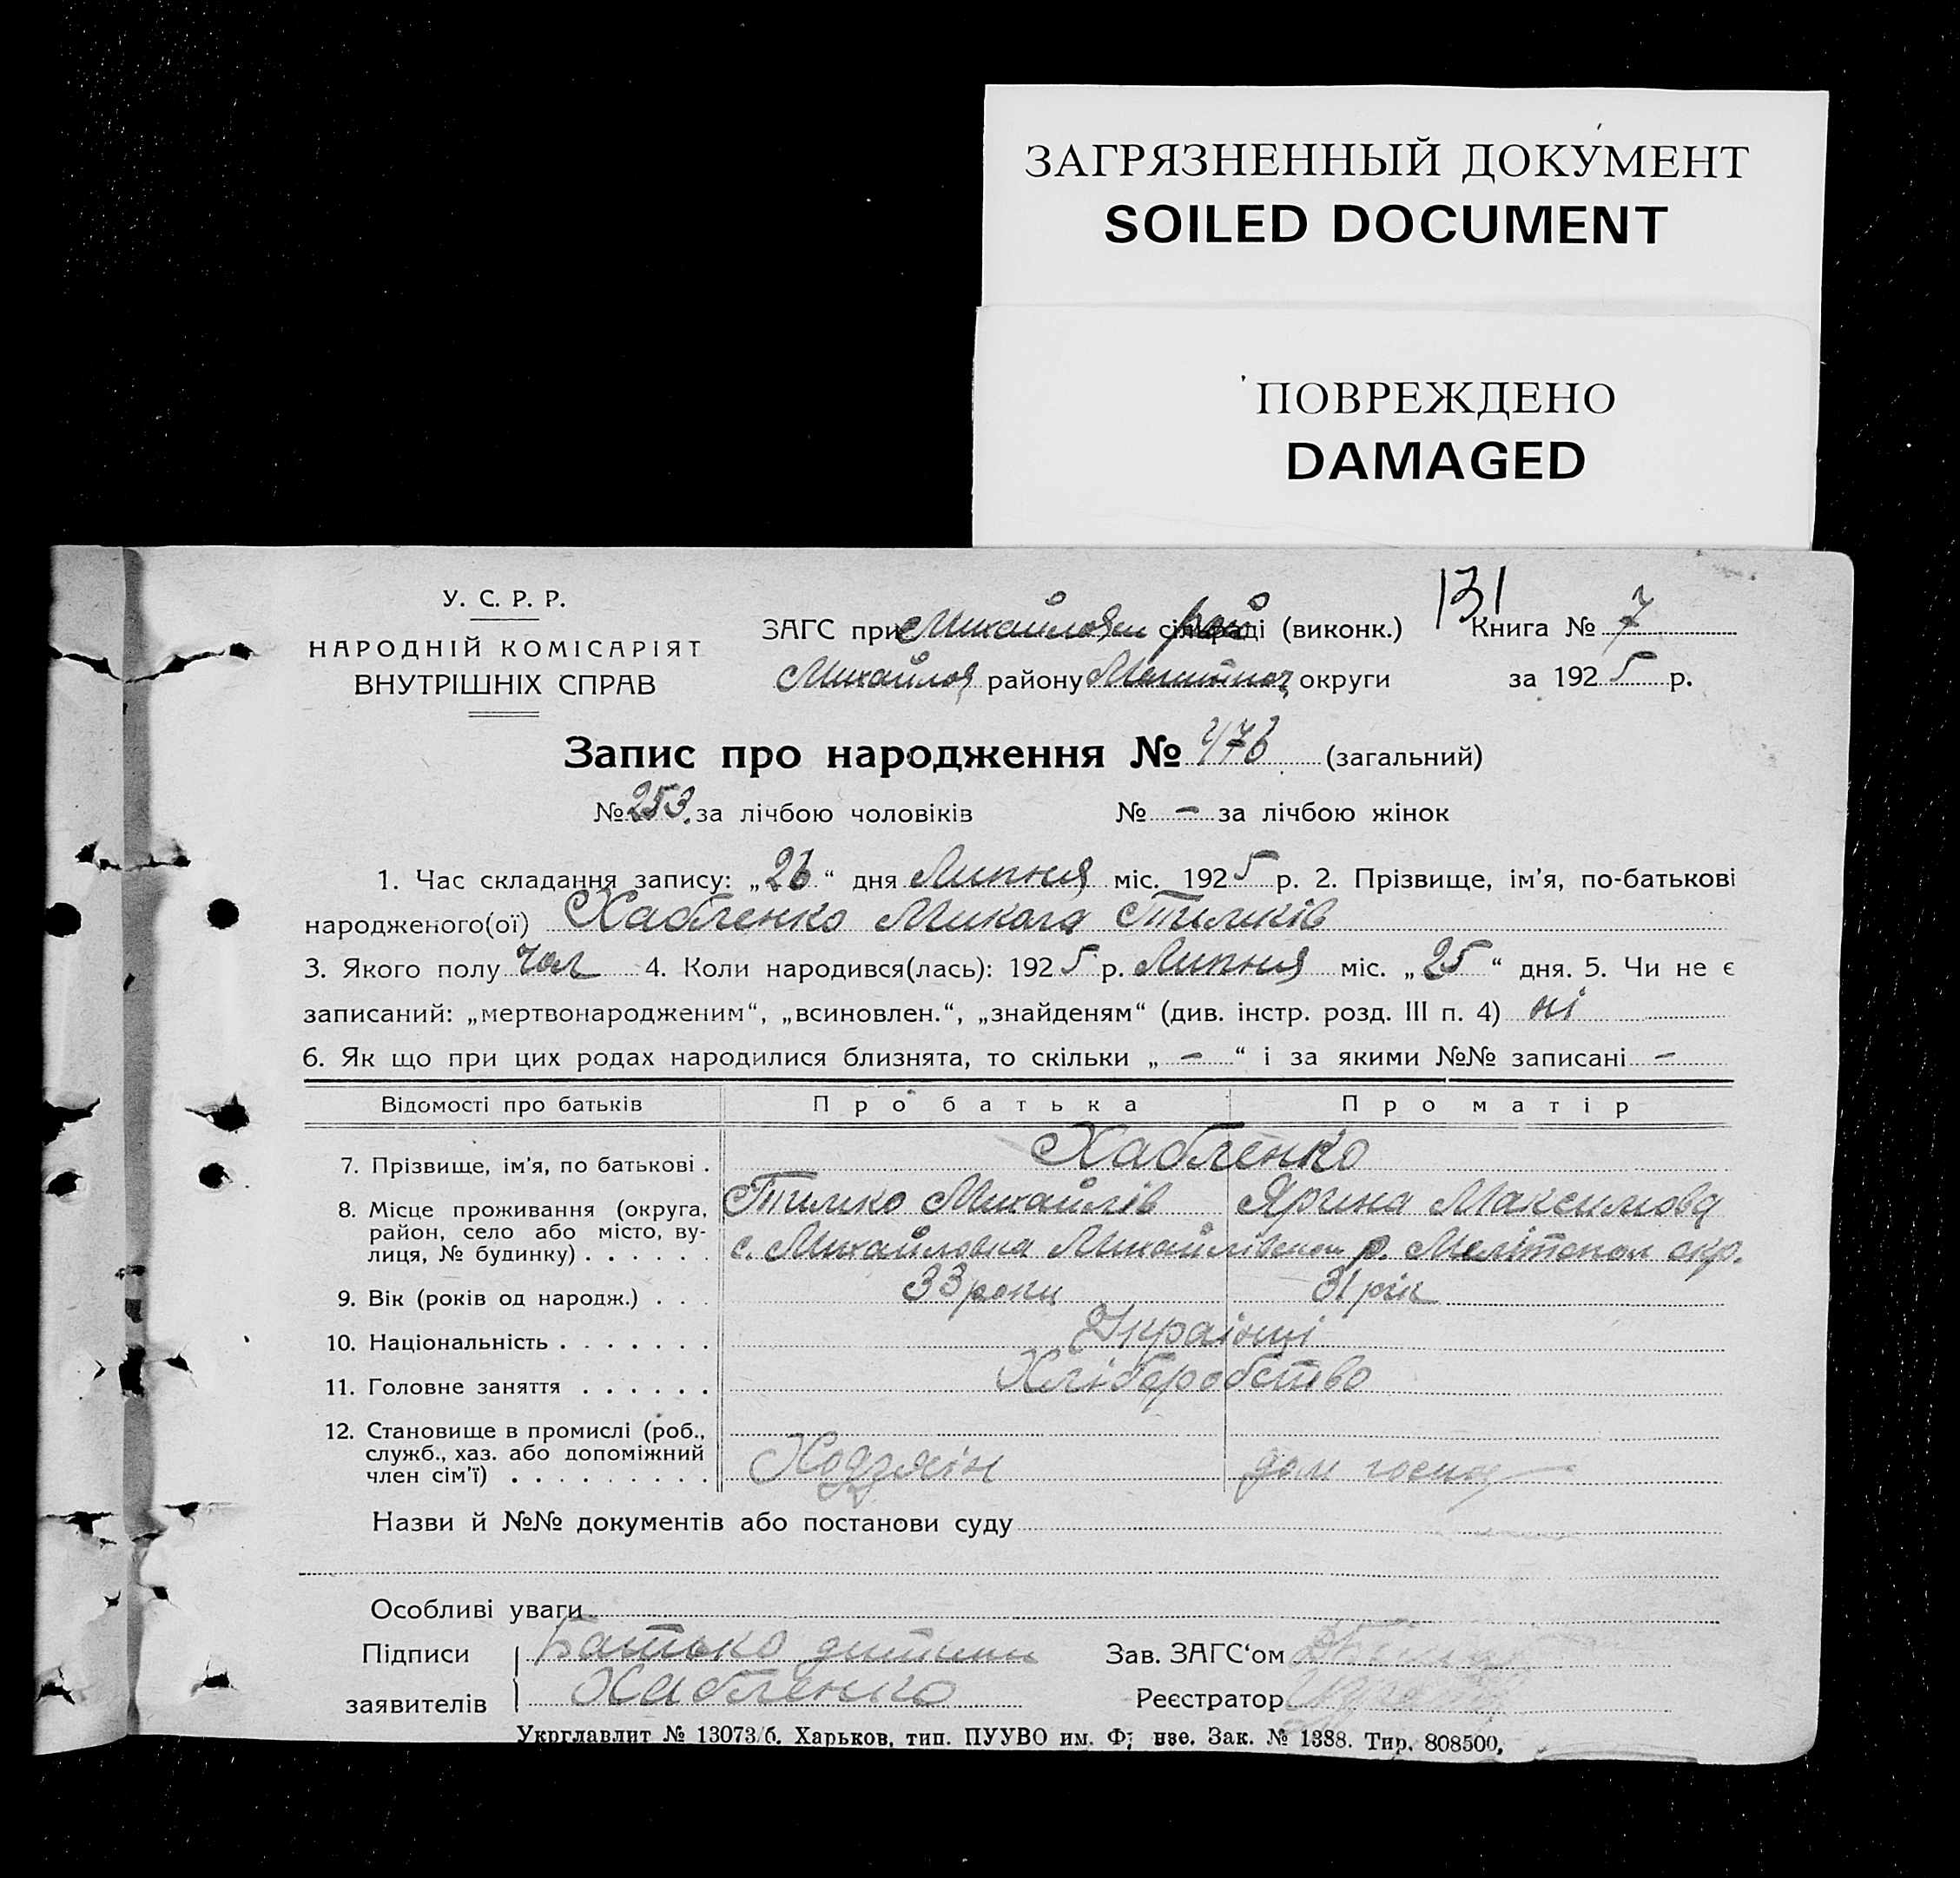 ЗАГРЯЗНЕННЫЙ ДОКУМЕНТ
SOILED DOCUMENT
ПОВРЕЖДЕНО
DAMAGED
У. С. Р. Р.
НАРОДНІЙ КОМІСАРІЯТ
ВНУТРІШНІХ СПРАВ
131
ЗАГС при Михайлов рай сільраді (виконк.) Книга № 7
Михайлов району Мелітоп округи за 1925 р.
Запис про народження № 476 (загальний)
№ 253 за лічбою чоловіків № – за лічбою жінок
1. Час складання запису: „26“ дня Липня міс. 1925 р. 2. Прізвище, ім’я, по-батькові
народженого(ої) Хабленко Микола Тимків
3. Якого полу чол 4. Коли народився(лась): 1925 р. Липня міс. „25“ дня. 5. Чи не є
записаний: „мертвонародженим“, „всиновлен.“, „знайденям“ (див. інстр. розд. III п. 4) ні
6. Як що при цих родах народилися близнята, то скільки „ – “ і за якими №№ записані –
Відомості про батьків Про батька Про матір
7. Прізвище, ім’я, по батькові . Хабленко
Тимко Михайлів Ярина Максимова
8. Місце проживання (округа, район, село або місто, ву-
лиця, № будинку) . . . . . . с. Михайловка Михайлівськ р. Мелітопол окр.
9. Вік (років од народж.) . . . 33 роки 31 рік
10. Національність . . . . . . . Українці
11. Головне заняття . . . . . . Хліборобство
12. Становище в промислі (роб.,
служб., хаз. або допоміжний
член сім’ї) . . . . . . . . . Ходзяїн дом госпо
Назви й №№ документів або постанови суду
Особливі уваги
Підписи Батько дитини Зав. ЗАГС‘ом
заявителів Хабленко Реєстратор
Укрглавлит № 13073/б. Харьков, тип. ПУУВО им. Зак. № 1388. Тир. 808500,